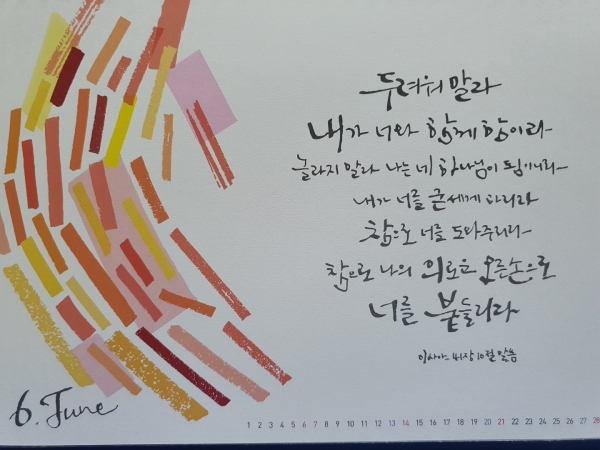 두려워 말라
내가 너와 함께 함이라
놀라지 말라 나는 네 하나님이 됨이니라
내가 너를 굳세게 하리라
참으로 너를 도와주리라
참으로 나의 의로운 오른손으로
너를 붙들리라
이사야 41장 10절 말씀
6. June
1 2 3 4 5 6 7 8 9 10 11 12 13 14 15 16 17 18 19 20 21 22 23 24 25 26 27 28